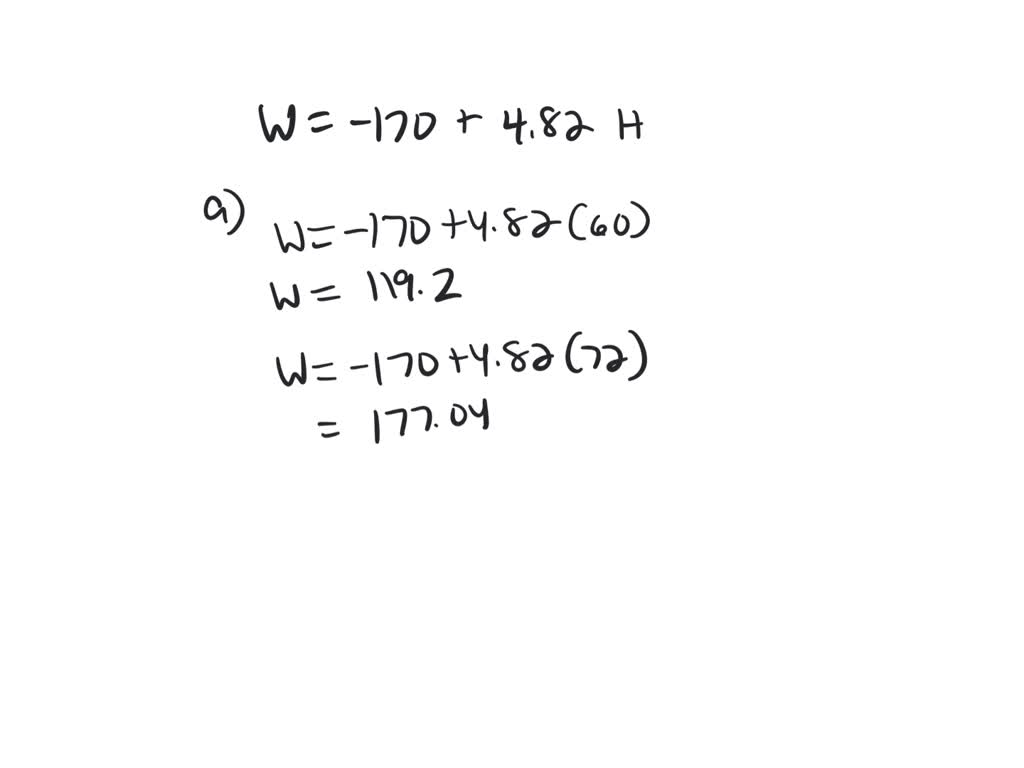 W = -170 + 4.82 H
a)
W = -170 + 4.82 (60)
W = 119.2
W = -170 + 4.82 (72)
= 177.04